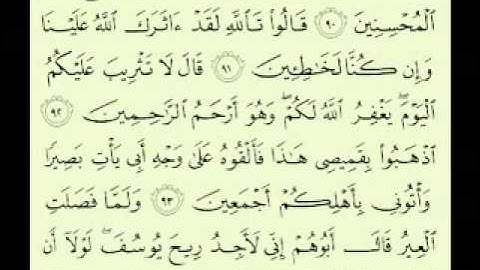 ٱلْمُحْسِنِينَ ٩٠ قَالُوا۟ تَٱللَّهِ لَقَدْ ءَاثَرَكَ ٱللَّهُ عَلَيْنَا
وَإِن كُنَّا لَخَـٰطِـِٔينَ ٩١ قَالَ لَا تَثْرِيبَ عَلَيْكُمُ
ٱلْيَوْمَ ۖ يَغْفِرُ ٱللَّهُ لَكُمْ ۖ وَهُوَ أَرْحَمُ ٱلرَّٰحِمِينَ ٩٢
ٱذْهَبُوا۟ بِقَمِيصِى هَـٰذَا فَأَلْقُوهُ عَلَىٰ وَجْهِ أَبِى يَأْتِ بَصِيرًا
وَأْتُونِى بِأَهْلِكُمْ أَجْمَعِينَ ٩٣ وَلَمَّا فَصَلَتِ
ٱلْعِيرُ قَالَ أَبُوهُمْ إِنِّى لَأَجِدُ رِيحَ يُوسُفَ ۖ لَوْلَآ أَن